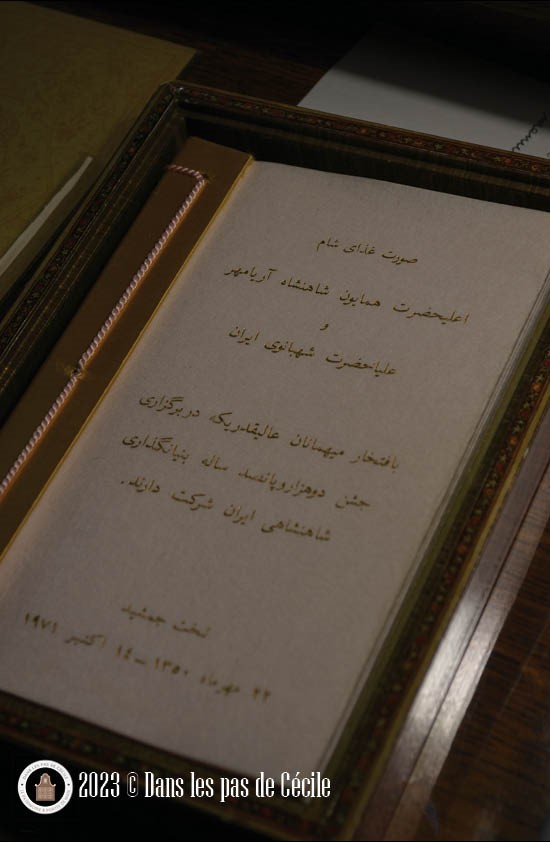 صورت غذای شام
اعلیحضرت همایون شاهنشاه آریامهر
و
علیاحضرت شهبانوی ایران
بافتخار میهمانان عالیقدریکه در برگزاری
جشن دوهزار و پانصد ساله بنیانگذاری
شاهنشاهی ایران شرکت دارند.
تخت جمشید
۲۲ مهرماه ۱۳۵۰ – ۱٤ اکتبر ۱۹۷۱
2023 © Dans les pas de Cécile